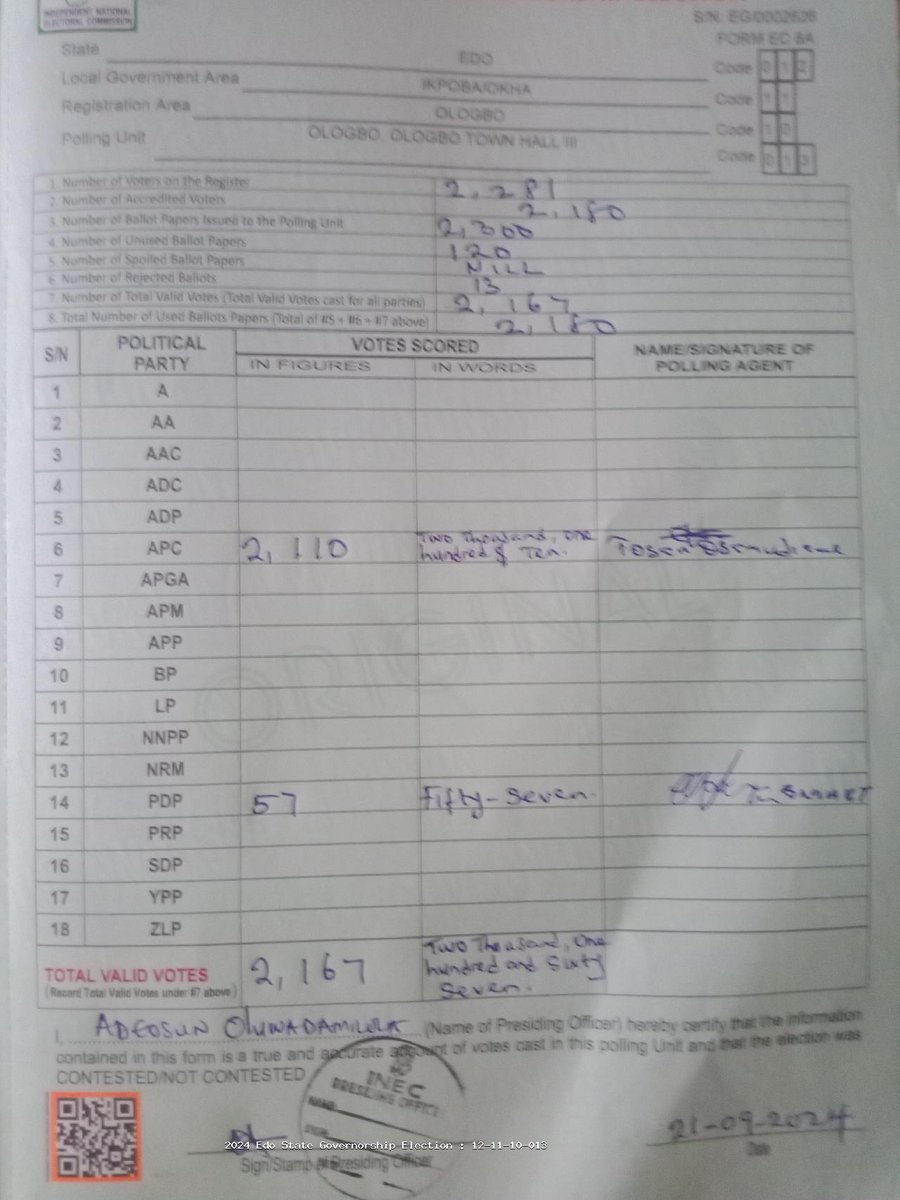 INDEPENDENT NATIONAL
ELECTORAL COMMISSION
S/N: EG/0002626
FORM EC 8A
State EDO Code 0 1 2
Local Government Area IKPOBA/OKHA Code 1 1
Registration Area OLOGBO Code 1 0
Polling Unit OLOGBO, OLOGBO TOWN HALL III Code 0 1 3
1. Number of Voters on the Register 2,281
2. Number of Accredited Voters 2,180
3. Number of Ballot Papers Issued to the Polling Unit 2,300
4. Number of Unused Ballot Papers 120
5. Number of Spoiled Ballot Papers NILL
6. Number of Rejected Ballots 13
7. Number of Total Valid Votes (Total Valid Votes cast for all parties) 2,167
8. Total Number of Used Ballots Papers (Total of #5 + #6 + #7 above) 2,180
S/N POLITICAL PARTY VOTES SCORED NAME/SIGNATURE OF POLLING AGENT
IN FIGURES IN WORDS
1 A
2 AA
3 AAC
4 ADC
5 ADP
6 APC 2,110 Two Thousand, One hundred & Ten.
7 APGA
8 APM
9 APP
10 BP
11 LP
12 NNPP
13 NRM
14 PDP 57 Fifty-Seven.
15 PRP
16 SDP
17 YPP
18 ZLP
TOTAL VALID VOTES 2,167 Two Thousand, One hundred and Sixty Seven.
(Record Total Valid Votes under #7 above)
I, ADEOSUN OLUWADAMILOLA (Name of Presiding Officer) hereby certify that the information
contained in this form is a true and accurate account of votes cast in this polling Unit and that the election was
CONTESTED/NOT CONTESTED
INEC
PRESIDING OFFICE
NAME
SIGN
21-09-2024
2024 Edo State Governorship Election : 12-11-10-013
Sign/Stamp of Presiding Officer
Date